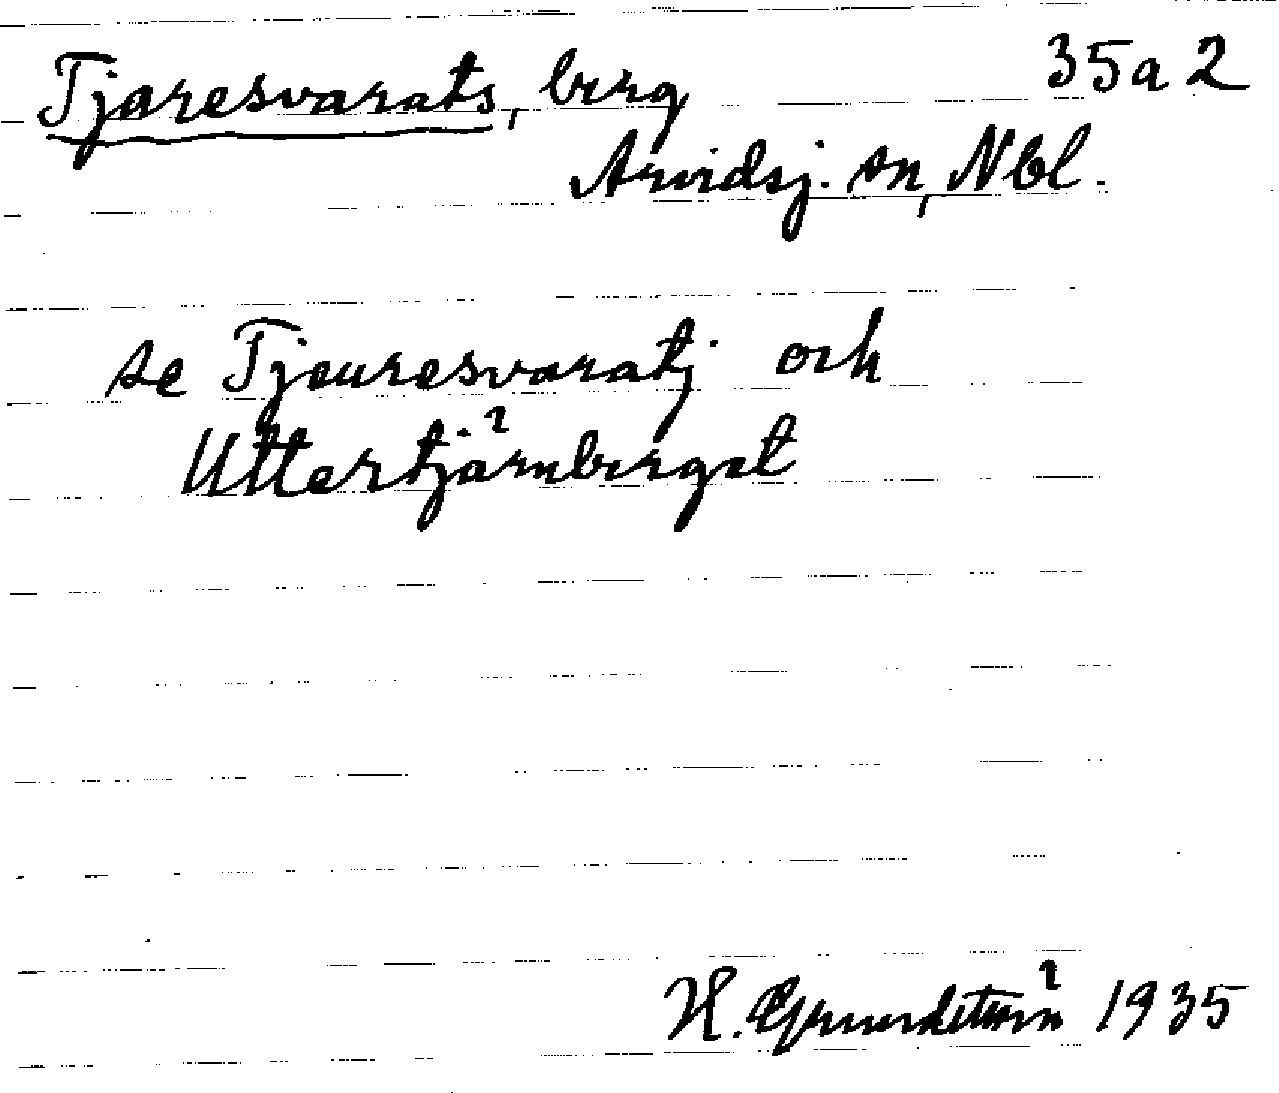 Tjaresvarats, berg 35a2
Arvidsj. sn, Nbl.
se Tjeuresvaratj och
Uttertjärnberget
H. Grundström 1935